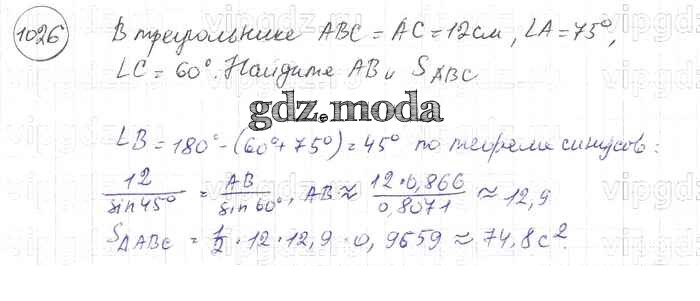 1026 В треугольнике ABC = AC = 12см, LA = 75°,
LC = 60°. Найдите AB и S△ABC
gdz.moda
LB = 180° - (60° + 75°) = 45° по теореме синусов:
12/sin45° = AB/sin60°, AB ≈ 12·0,866/0,8071 ≈ 12,9
S△ABC = 1/2 · 12 · 12,9 · 0,9659 ≈ 74,8с².